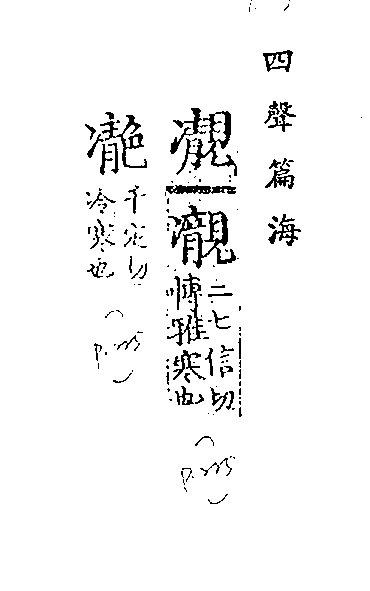 四聲篇海
二七信切
博雅寒也
(P.225)
千定切
冷寒也
(P.225)